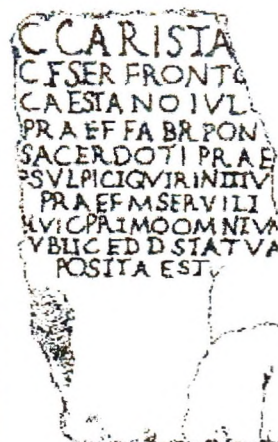 C CARISTA
C F SER FRONTO
CAESIANO IVL
PRAEF FABR PON
SACERDOTI PRAE
P SVLPICI QVIRINI II V
PRAEF M SERVILI
HVIC PRIMO OMNIVM
VBLIC E D D STATVA
POSITA EST